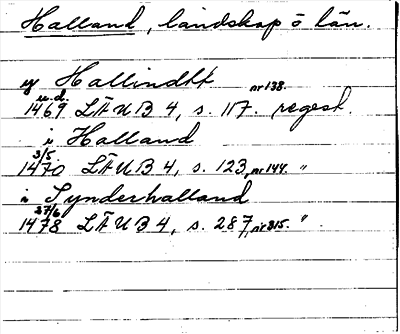 Halland, landskap o län.
uj Hallindtt nr 138.
u.d.
1469 LÄUB 4, s. 117. regest.
i Halland
3/5
1470 LÄUB 4, s. 123, nr 144. "
i Synderhalland
27/6
1478 LÄUB 4, s. 287, nr 315. "